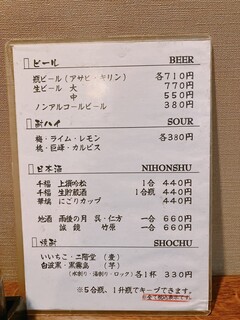 ビール BEER
瓶ビール(アサヒ・キリン) 各710円
生ビール 大 770円
中 550円
ノンアルコールビール 380円
酎ハイ SOUR
梅・ライム・レモン 各380円
桃・巨峰・カルピス
日本酒 NIHONSHU
千福 上撰吟松 1合 440円
千福 生貯蔵酒 1合瓶 440円
華鳩 にごりカップ 440円
地酒 雨後の月 呉・仁方 一合 660円
誠鏡 竹原 一合 660円
焼酎 SHOCHU
いいちこ・二階堂 (麦)
白波黒・黒霧島 (芋)
(水割り・湯割り・ロック) 各1杯 330円
※5合瓶、1升瓶でキープできます。